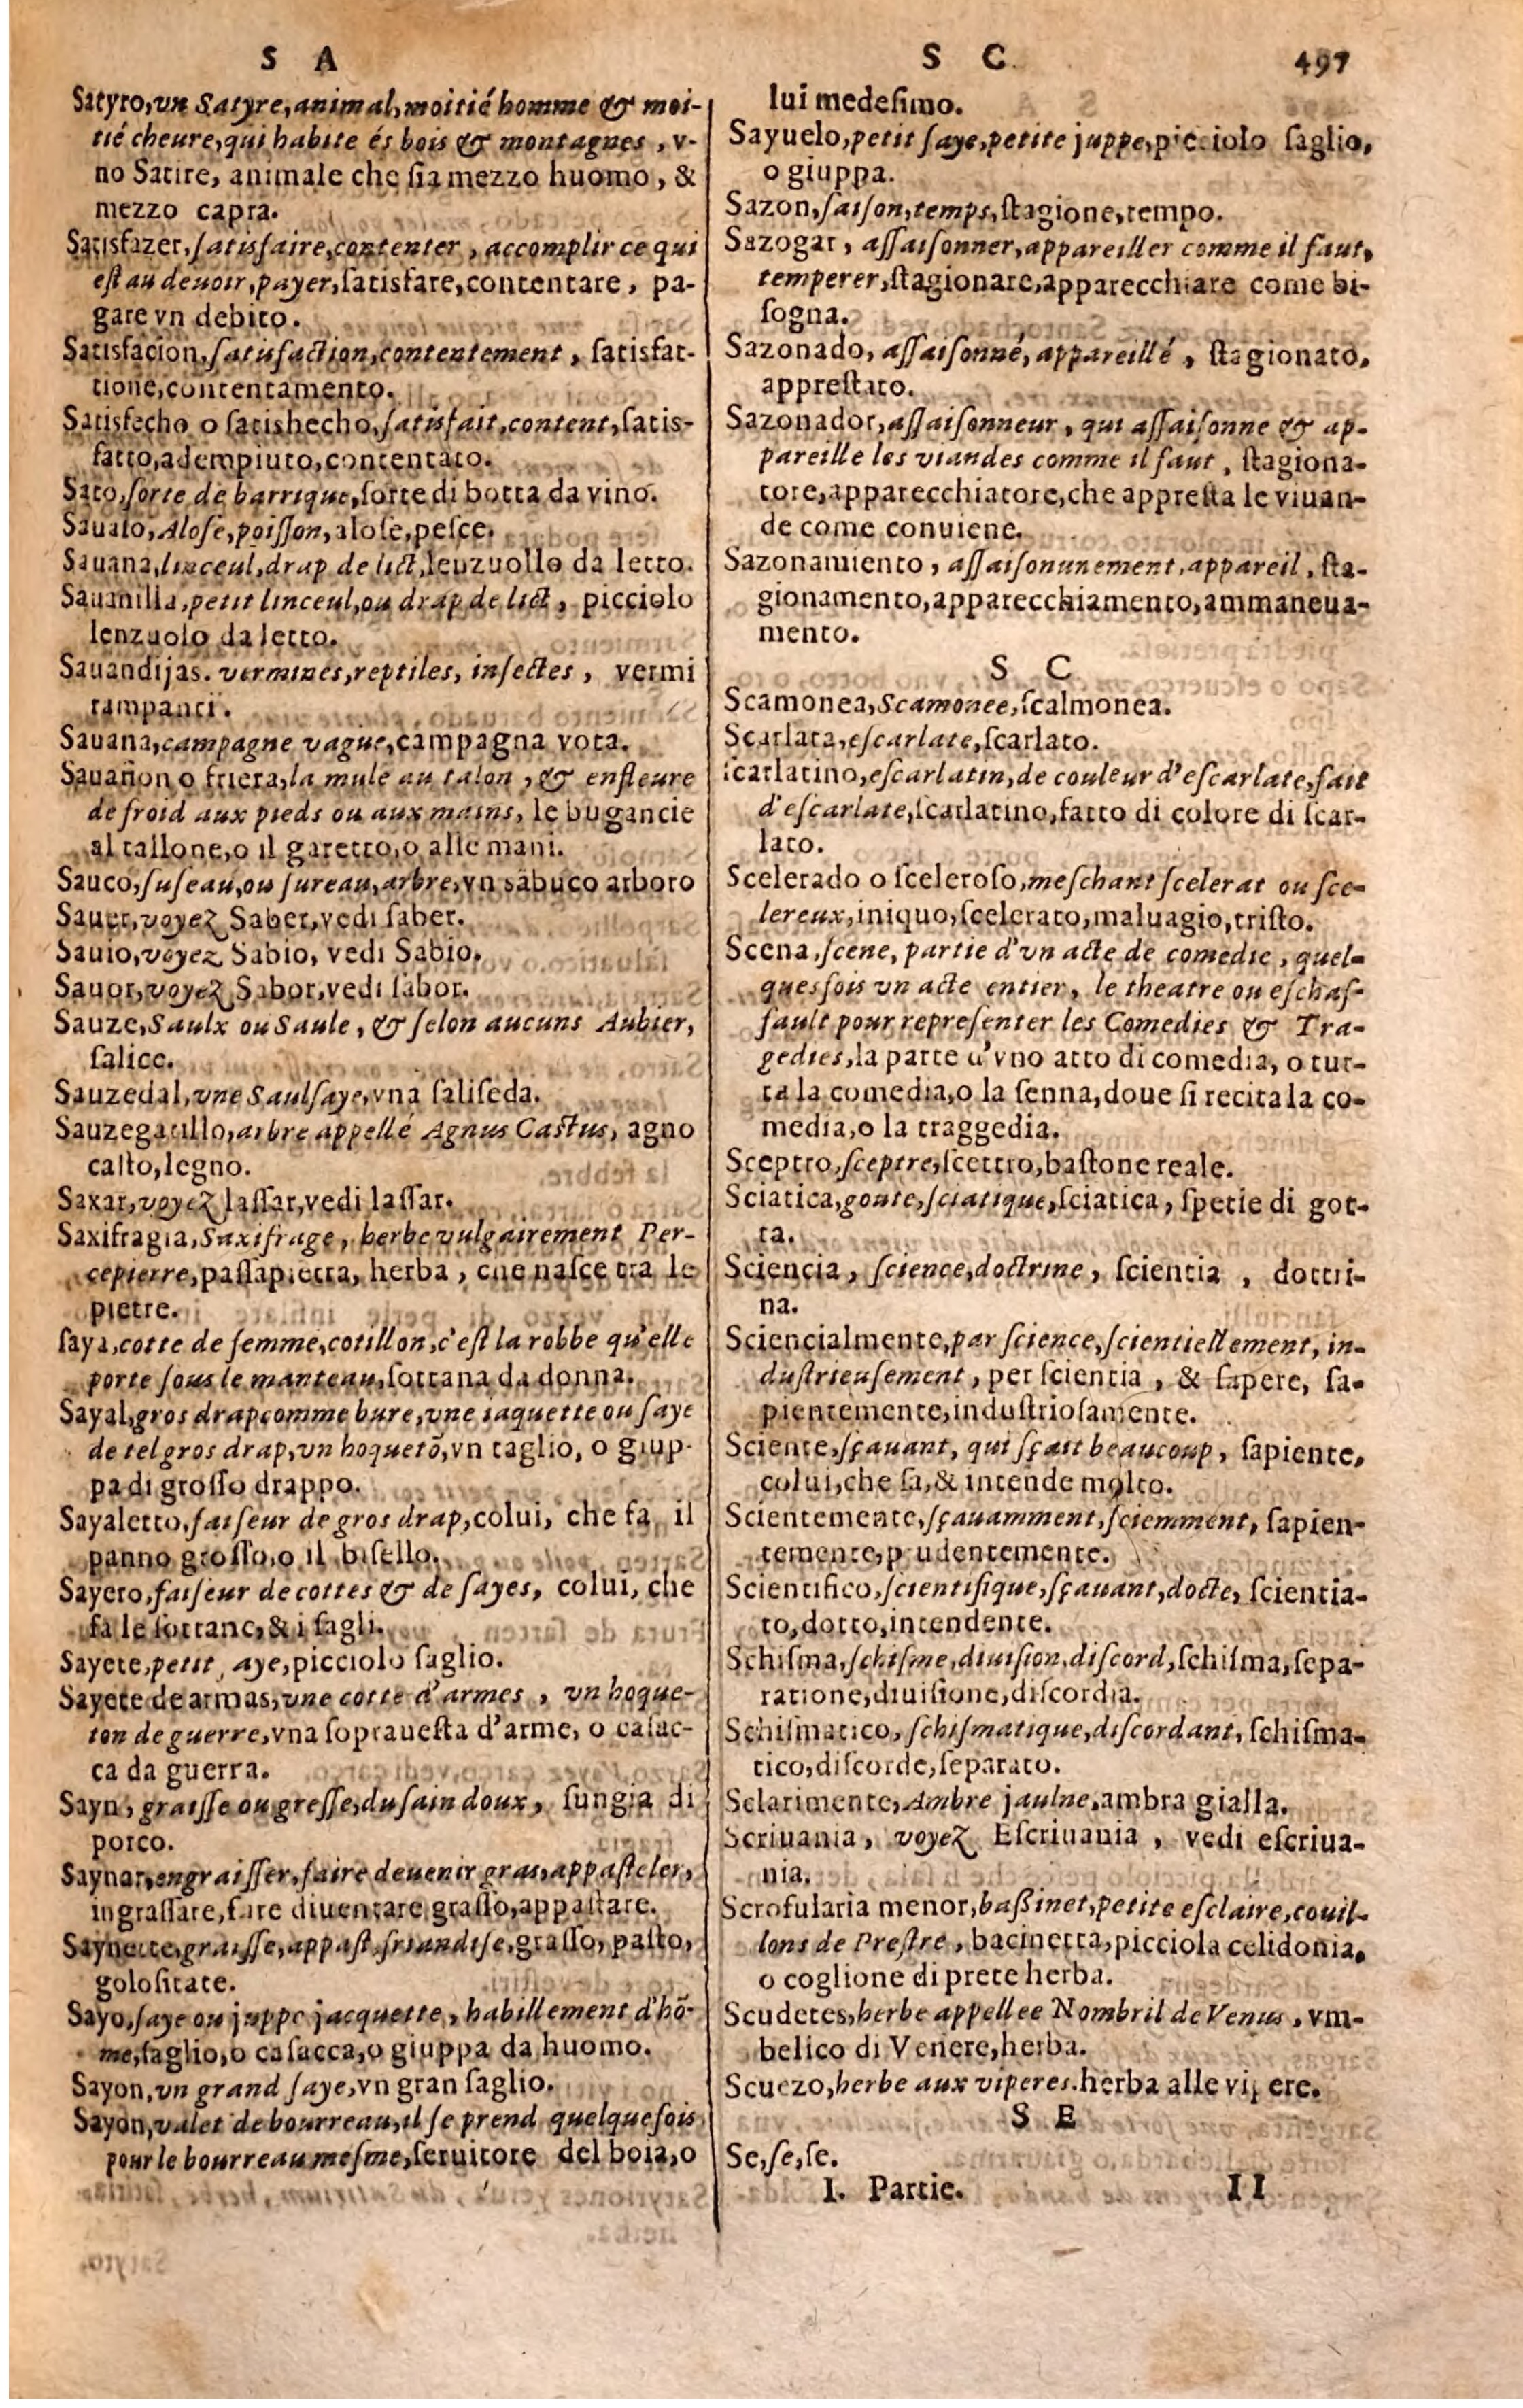 S A
Satyro, vn Satyre, animal, moitié homme & moi-
tié cheure, qui habite és bois & montagnes, v-
no Satire, animale che ſia mezzo huomo, &
mezzo capra.
Satisfazer, ſatisfaire, contenter, accomplir ce qui
eſt au deuoir, payer, ſatisfare, contentare, pa-
gare vn debito.
Satisfacion, ſatisfaction, contentement, ſatisfat-
tione, contentamento.
Satisfecho o ſatishecho, ſatisfait, content, ſatis-
fatto, adempiuto, contentato.
Sato, ſorte de barrique, ſorte di botta da vino.
Saualo, Aloſe, poiſſon, aloſe, peſce.
Sauana, linceul, drap de lict, lenzuollo da letto.
Sauanilla, petit linceul, ou drap de lict, picciolo
lenzuolo da letto.
Sauandijas. vermines, reptiles, inſectes, vermi
rampanti.
Sauana, campagne vague, campagna vota.
Sauañon o friera, la mule au talon, & enfleure
de froid aux pieds ou aux mains, le bugancie
al tallone, o il garetto, o alle mani.
Sauco, ſuſeau, ou ſureau, arbre, vn sabuco arboro
Sauer, voyez Saber, vedi ſaber.
Sauio, voyez Sabio, vedi Sabio.
Sauor, voyez Sabor, vedi ſabor.
Sauze, Saulx ou Saule, & ſelon aucuns Aubier,
ſalice.
Sauzedal, vne Saulſaye, vna ſaliſeda.
Sauzegatillo, arbre appellé Agnus Caſtus, agno
caſto, legno.
Saxar, voyez laſſar, vedi laſſar.
Saxifragia, Saxifrage, herbe vulgairement Per-
cepierre, paſſapietra, herba, che naſce tra le
pietre.
ſaya, cotte de femme, cotillon, c'eſt la robbe qu'elle
porte ſous le manteau, ſottana da donna.
Sayal, gros drap comme bure, vne iaquette ou ſaye
de tel gros drap, vn hoquetõ, vn taglio, o giup-
pa di groſſo drappo.
Sayaletto, faiſeur de gros drap, colui, che fa il
panno groſſo, o il biſello.
Sayero, faiſeur de cottes & de ſayes, colui, che
fa le ſottane, & i ſagli.
Sayete, petit aye, picciolo ſaglio.
Sayete de armas, vne cotte d'armes, vn hoque-
ton de guerre, vna ſoprauefta d'arme, o caſac-
ca da guerra.
Sayn, graiſſe ou greſſe, du ſain doux, ſungia di
porco.
Saynar, engraiſſer, faire deuenir gras, appaſteler,
ingraſſare, fare diuentare graſſo, appaſtare.
Saynette, graiſſe, appaſt, friandiſe, graſſo, paſto,
goloſitate.
Sayo, ſaye ou juppe jacquette, habillement d'hõ-
me, ſaglio, o caſacca, o giuppa da huomo.
Sayon, vn grand ſaye, vn gran ſaglio.
Sayon, valet de bourreau, il ſe prend quelquefois
pour le bourreau meſme, ſeruitore del boia, o
S C 497
lui medeſimo.
Sayuelo, petit ſaye, petite juppe, picciolo ſaglio,
o giuppa.
Sazon, ſaiſon, temps, ſtagione, tempo.
Sazogar, aſſaiſonner, appareiller comme il faut,
temperer, ſtagionare, apparecchiare come bi-
ſogna.
Sazonado, aſſaiſonné, appareillé, ſtagionato,
appreſtato.
Sazonador, aſſaiſonneur, qui aſſaiſonne & ap-
pareille les viandes comme il faut, ſtagiona-
tore, apparecchiatore, che appreſta le viuan-
de come conuiene.
Sazonamiento, aſſaiſonunement, appareil, ſta-
gionamento, apparecchiamento, ammaneua-
mento.
S C
Scamonea, Scamonee, ſcalmonea.
Scarlata, eſcarlate, ſcarlato.
ſcarlatino, eſcarlatin, de couleur d'eſcarlate, fait
d'eſcarlate, ſcarlatino, fatto di colore di ſcar-
lato.
Scelerado o ſceleroſo, meſchant ſcelerat ou ſce-
lereux, iniquo, ſcelerato, maluagio, triſto.
Scena, ſcene, partie d'vn acte de comedie, quel-
quesfois vn acte entier, le theatre ou eſchaf-
fault pour repreſenter les Comedies & Tra-
gedies, la parte d'vno atto di comedia, o tut-
ta la comedia, o la ſenna, doue ſi recita la co-
media, o la traggedia.
Sceptro, ſceptre, ſcettro, baſtone reale.
Sciatica, goute, ſciatique, ſciatica, ſpetie di got-
ta.
Sciencia, ſcience, doctrine, ſcientia, dottri-
na.
Sciencialmente, par ſcience, ſcientiellement, in-
duſtrieuſement, per ſcientia, & ſapere, ſa-
pientemente, induſtrioſamente.
Sciente, ſçauant, qui ſçait beaucoup, ſapiente,
colui, che ſa, & intende molto.
Scientemente, ſçauamment, ſciemment, ſapien-
temente, prudentemente.
Scientifico, ſcientifique, ſçauant, docte, ſcientia-
to, dotto, intendente.
Schiſma, ſchiſme, diuiſion, diſcord, ſchiſma, ſepa-
ratione, diuiſione, diſcordia.
Schiſmatico, ſchiſmatique, diſcordant, ſchiſma-
tico, diſcorde, ſeparato.
Sclarimente, Ambre jaulne, ambra gialla.
Scriuania, voyez Eſcriuania, vedi eſcriua-
nia.
Scrofularia menor, baßinet, petite eſclaire, couil-
lons de Preſtre, bacinetta, picciola celidonia,
o coglione di prete herba.
Scudetes, herbe appellee Nombril de Venus, vm-
belico di Venere, herba.
Scuezo, herbe aux viperes. herba alle vipere.
S E
Se, ſe, ſe.
I. Partie. II